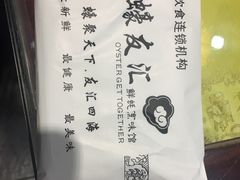 饮食连锁机构
蠔友汇
OYSTER GET TOGETHER
鲜蚝烹味馆
蠔聚天下 友汇四海
最新鲜 最健康 最美味